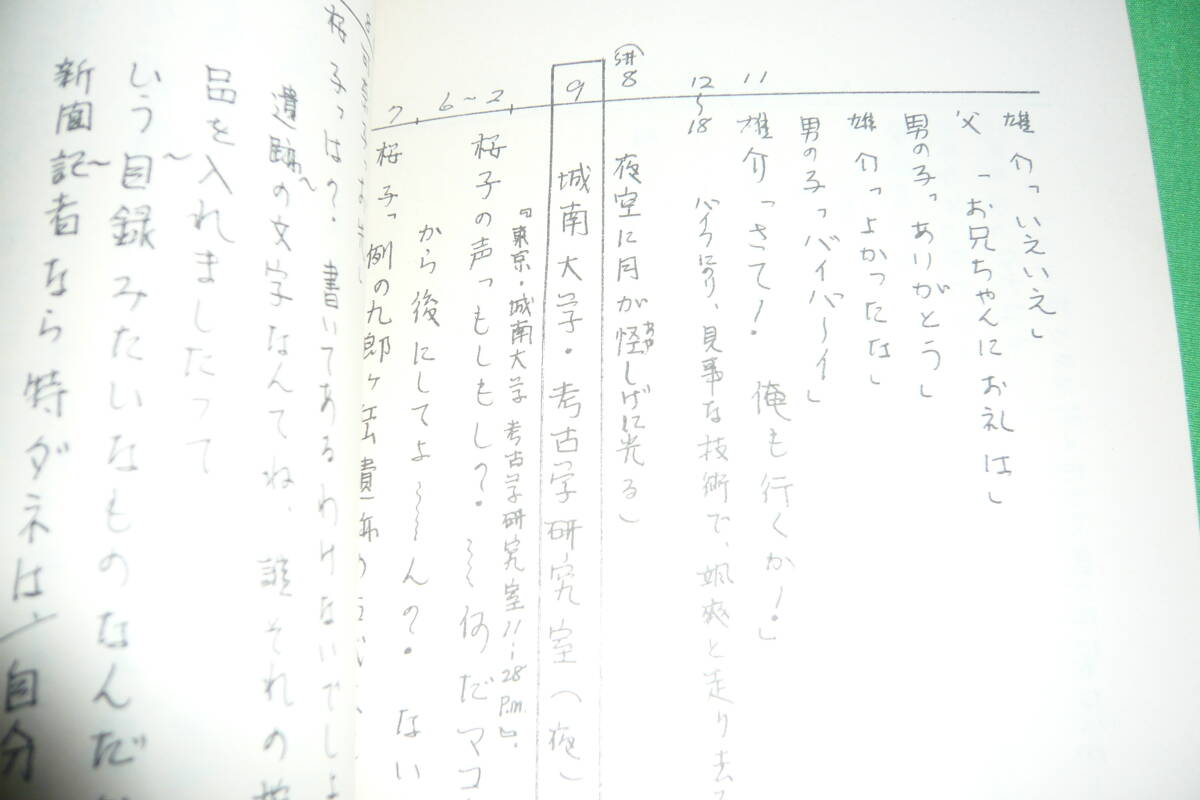 雄介「いえいえ」
父「お兄ちゃんにお礼は」
男の子「ありがとう」
雄介「よかったな」
男の子「バイバ〜イ」
11
雄介「さて! 俺も行くか!」
12〜18
バイクにのり、見事な技術で、颯爽と走り去
S#8
夜空に月が怪しげに光る」
あや
9
城南大学・考古学研究室(夜)
『東京・城南大学 考古学研究室 11:28 P.m.』
6〜2
桜子の声「もしもし? 〜〜何だマコ
から後にしてよ〜〜〜ん?な
7
桜子「例の九郎ヶ岳遺跡の
8
桜子「は? 書いてあるわけないでしょ
遺跡の文字なんてね、誰それの
品を入れましたって
いう目録みたいなものなんだ
新聞記者なら特ダネは、自分